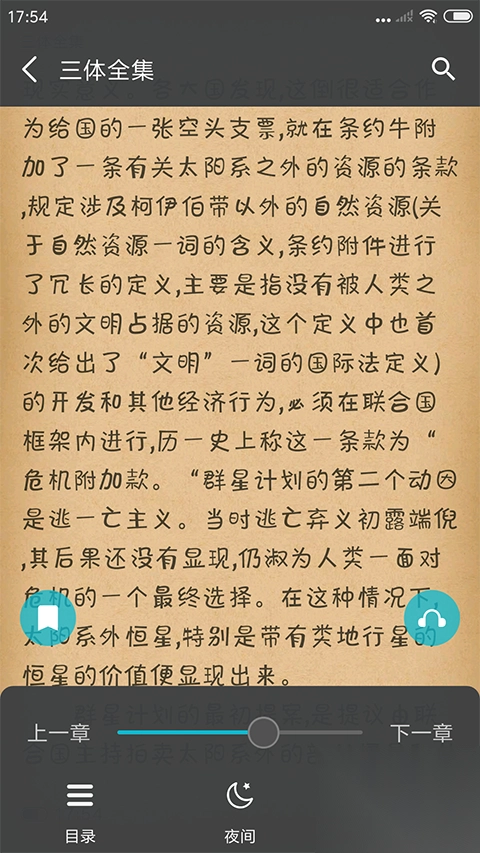 17:54
三体全集
为给国的一张空头支票,就在条约牛附
加了一条有关太阳系之外的资源的条款
,规定涉及柯伊伯带以外的自然资源(关
于自然资源一词的含义,条约附件进行
了冗长的定义,主要是指没有被人类之
外的文明占据的资源,这个定义中也首
次给出了“文明”一词的国际法定义)
的开发和其他经济行为,必须在联合国
框架内进行,历一史上称这一条款为“
危机附加款。“群星计划的第二个动因
是逃一亡主义。当时逃亡弃义初露端倪
,其后果还没有显现,仍淑为人类一面对
危机的一个最终选择。在这种情况下,
太阳系外恒星,特别是带有类地行星的
恒星的价值便显现出来。
群星计划的最初提案,是提议由联
合国主持拍卖太阳系外的
上一章
下一章
目录
夜间